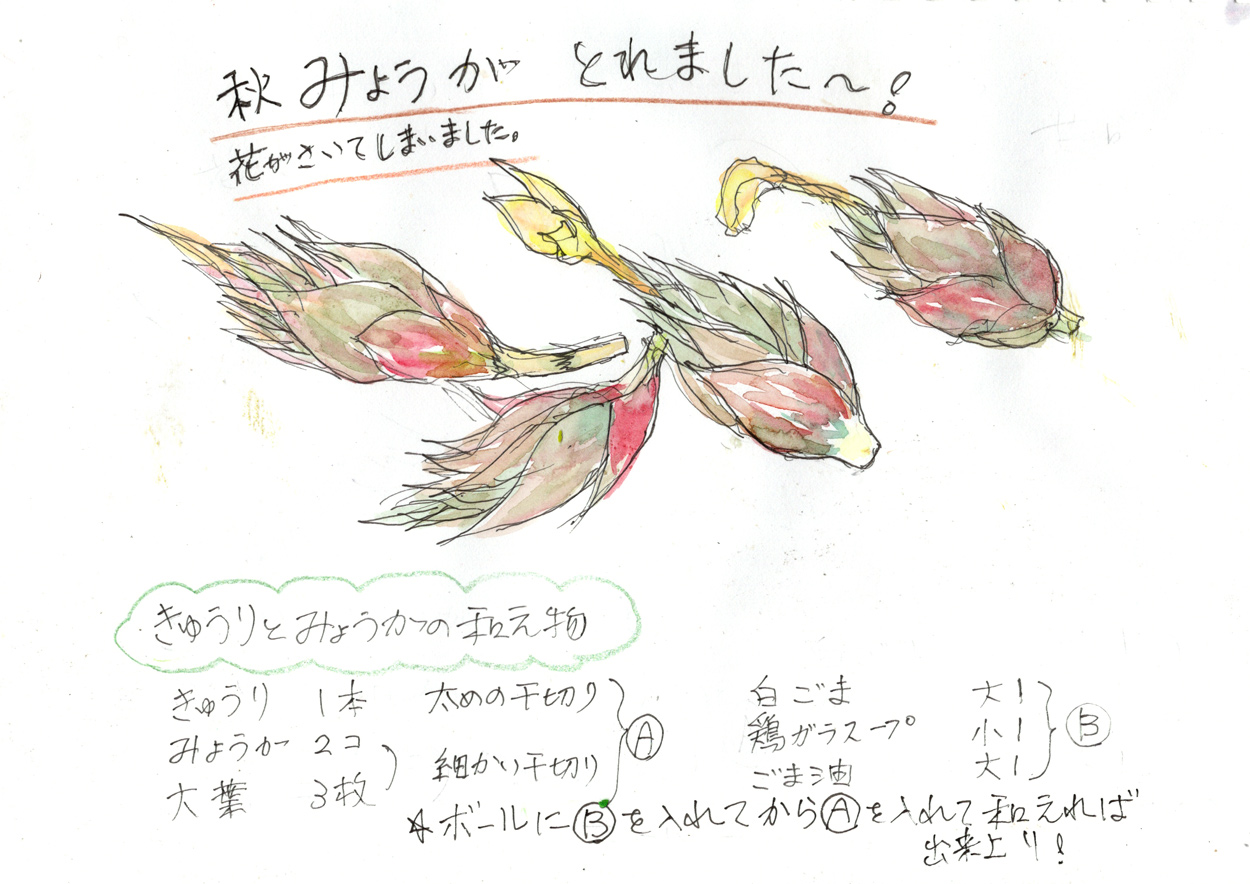 秋みょうが とれました〜!
花がさいてしまいました。
きゅうりとみょうがの和え物
きゅうり 1本 太めの千切り
みょうが 2コ
細かい千切り
大葉 3枚
Ⓐ
白ごま 大1
鶏ガラスープ 小1
ごま油 大1
Ⓑ
☆ボールにⒷを入れてからⒶを入れて和えれば
出来上り!